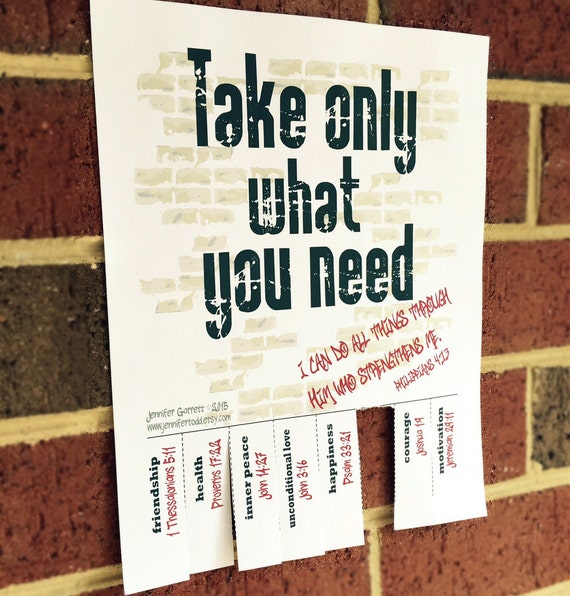 Take only
what
you need
I CAN DO ALL THINGS THROUGH
HIM WHO STRENGTHENS ME.
PHILIPPIANS 4:13
Jennifer Garrett ©2015
www.jennifertodd.etsy.com
friendship
1 Thessalonians 5:11
health
Proverbs 17:22
inner peace
John 14:27
unconditional love
John 3:16
happiness
Psalm 33:21
courage
Joshua 1:9
motivation
Jeremiah 29:11